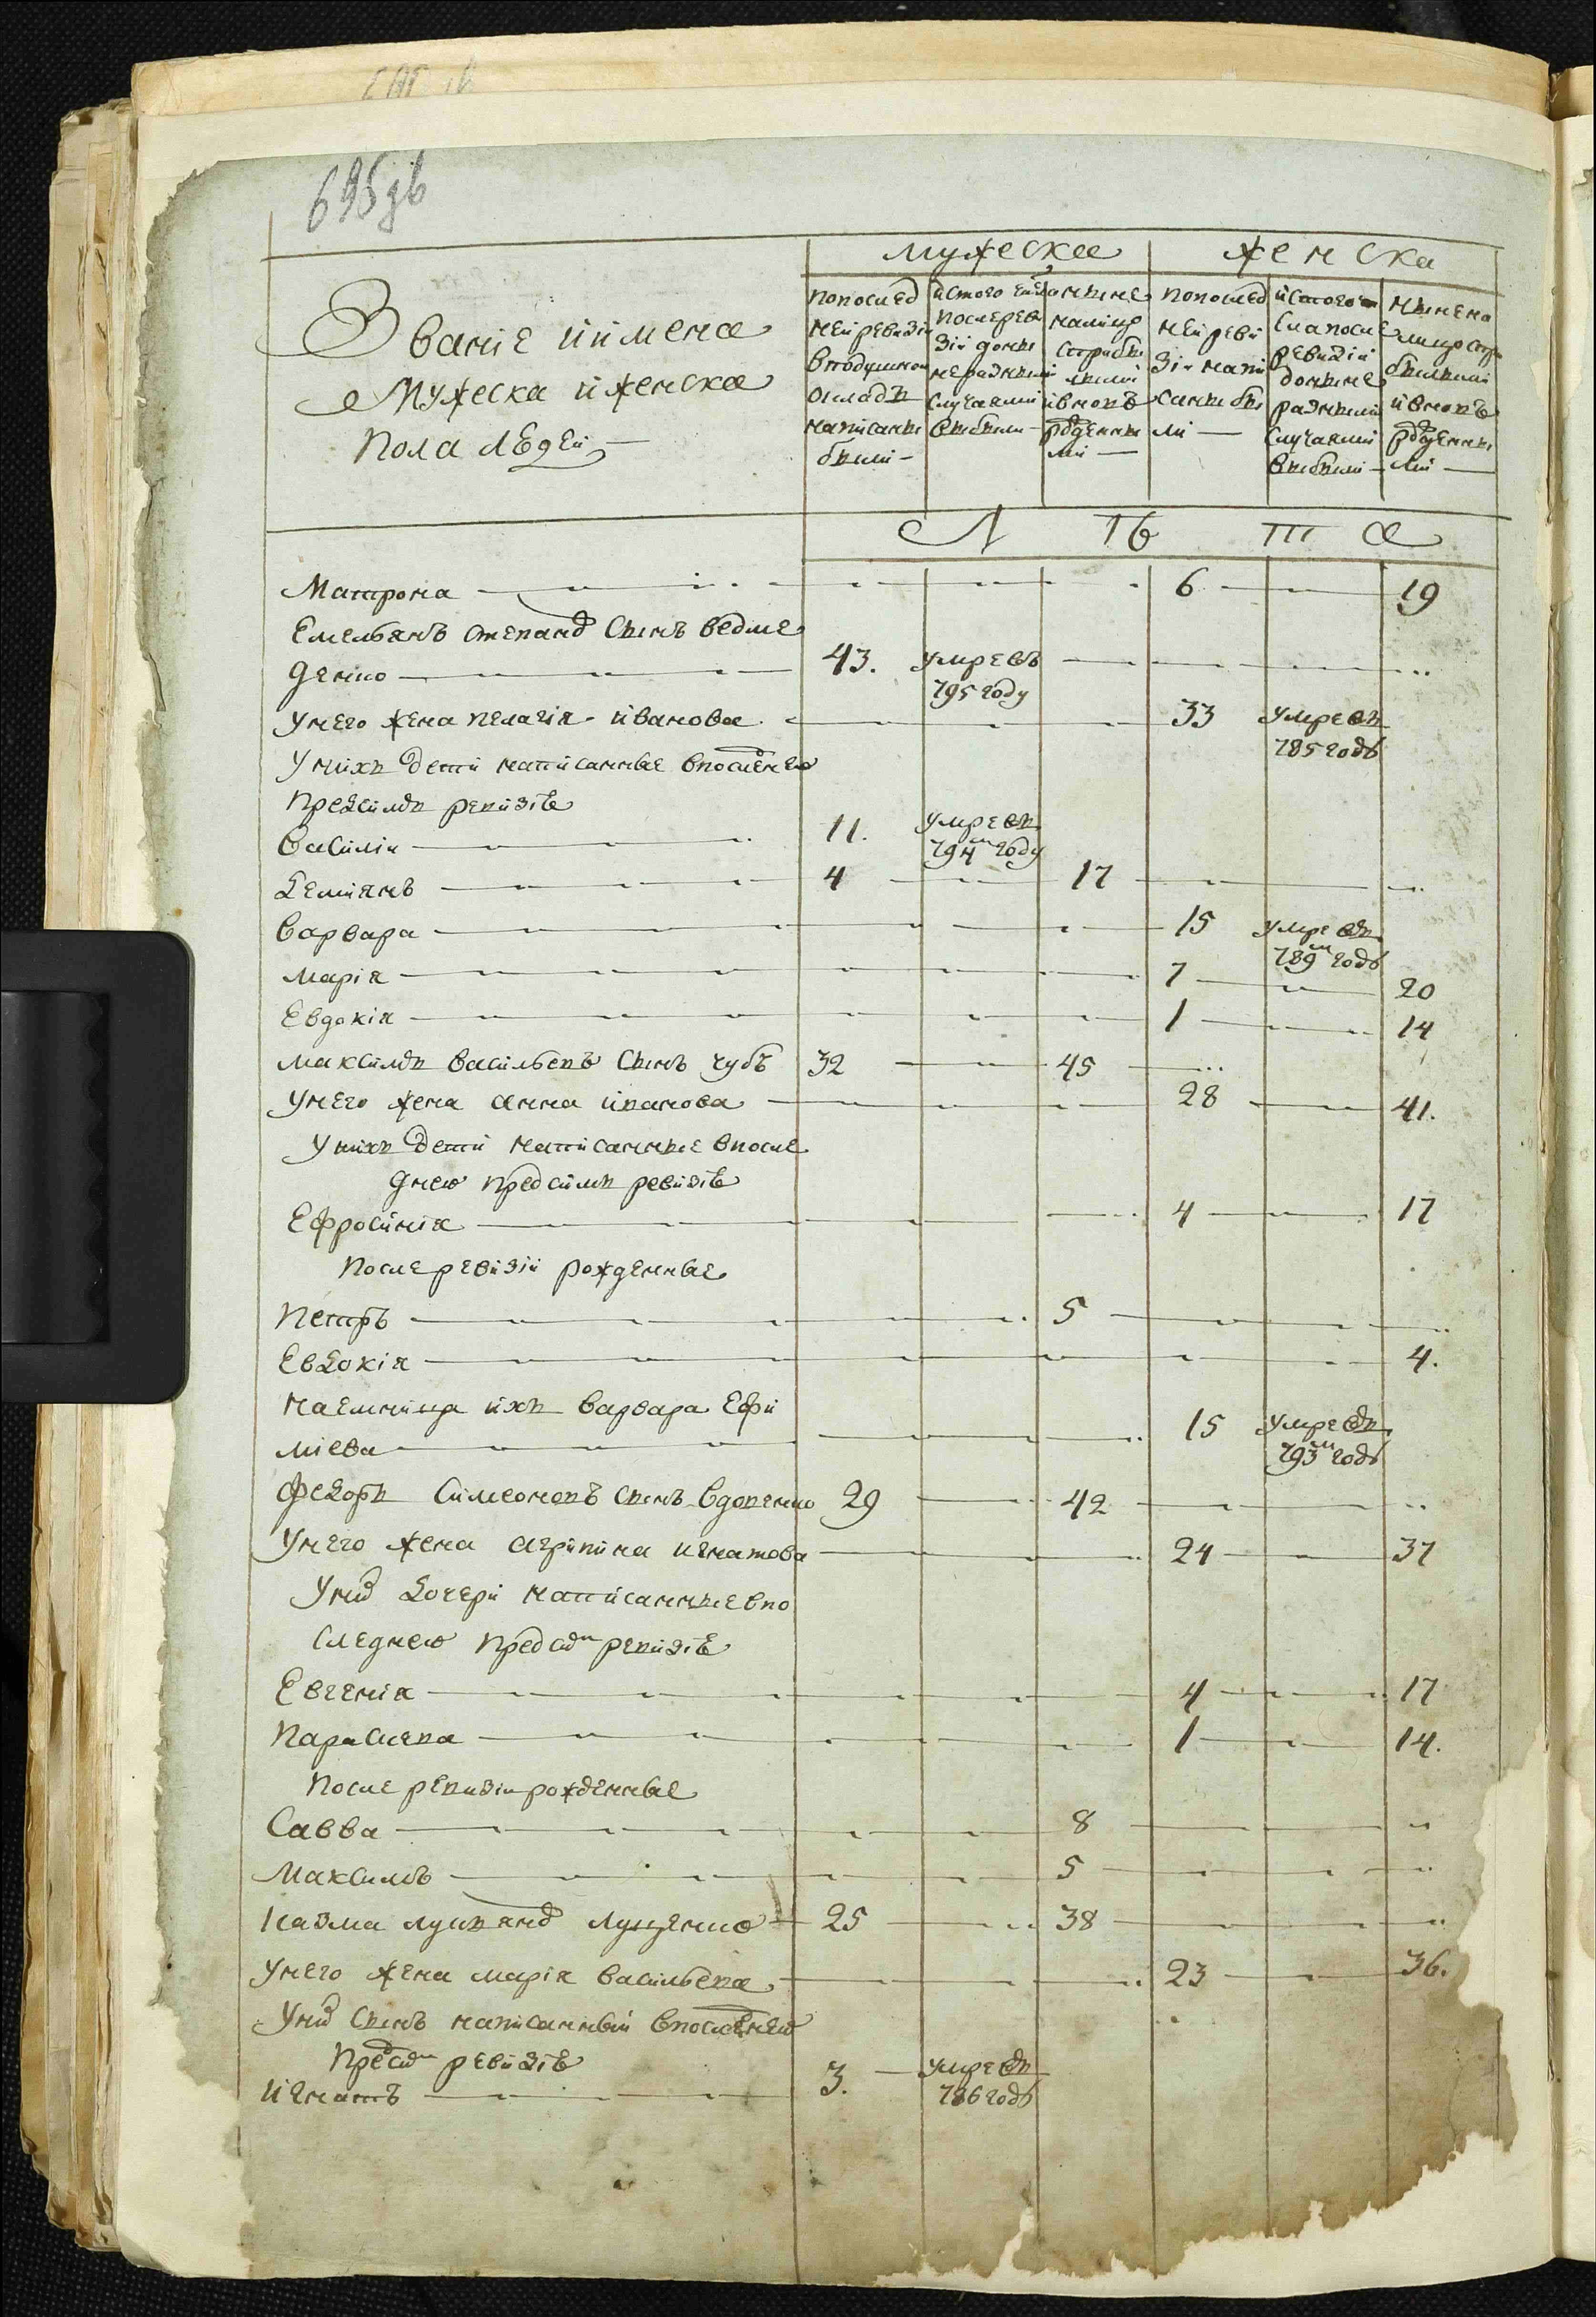 695 зв
Мужеска
Женска
Званіе и имена
Мужеска и женска
Пола людей
По послед
ней ревизіи
в подушном
окладѣ
написаны
были
Ис того числа
после реви
зіи до ныне
разными
случаями
выбыли
ныне
на лицо
с прибы
лыми
и вновь
рожденны
ми
По послед
ней реви
зіи напи
саны бы
ли
Ис того чи
сла после
ревизіи
до ныне
разными
случаями
выбыли
Ныне на
лицо с при
былыми
и вновь
рожденны
ми
Л ѣ т а
Матрона 6 19
Емельянъ степановъ сынъ ведме
денко 43. умре въ
795 году
У него жена пелагія ивановa 33 умре въ
785 годѣ
У нихъ дети написанные в последнею
пред симъ ревизіе
Василій 11. умре въ
794м году
Демиянъ 4 17
Варвара 15 умре въ
789м годѣ
Марія 7 20
Евдокія 1 14
Максимъ Васильевъ сынъ чубъ 32 45
У него жена анна иванова 28 41.
У нихъ дети написанные в после
днею пред симъ ревизіе
Ефросинія 4 17
После ревизіи рожденные
Петръ 5
Евдокія 4.
Наемница ихъ Варвара Ефи
міева 15 умре въ
793м годѣ
Федоръ Симеоновъ сынъ вдовенко 29 42
У него жена агрипина игнатова 24 37
У них дочери написанные в по
следнею пред симъ ревизіе
Евгенія 4 17
Параскева 1 14.
После ревизіи рожденные
Савва 8
Максимъ 5
Казма лукьянов луценко 25 38
У него жена марія васильева 23 36.
У них сынъ написанный в последнею
пред симъ ревизіе
Игнатъ 3. умре въ
786 годѣ